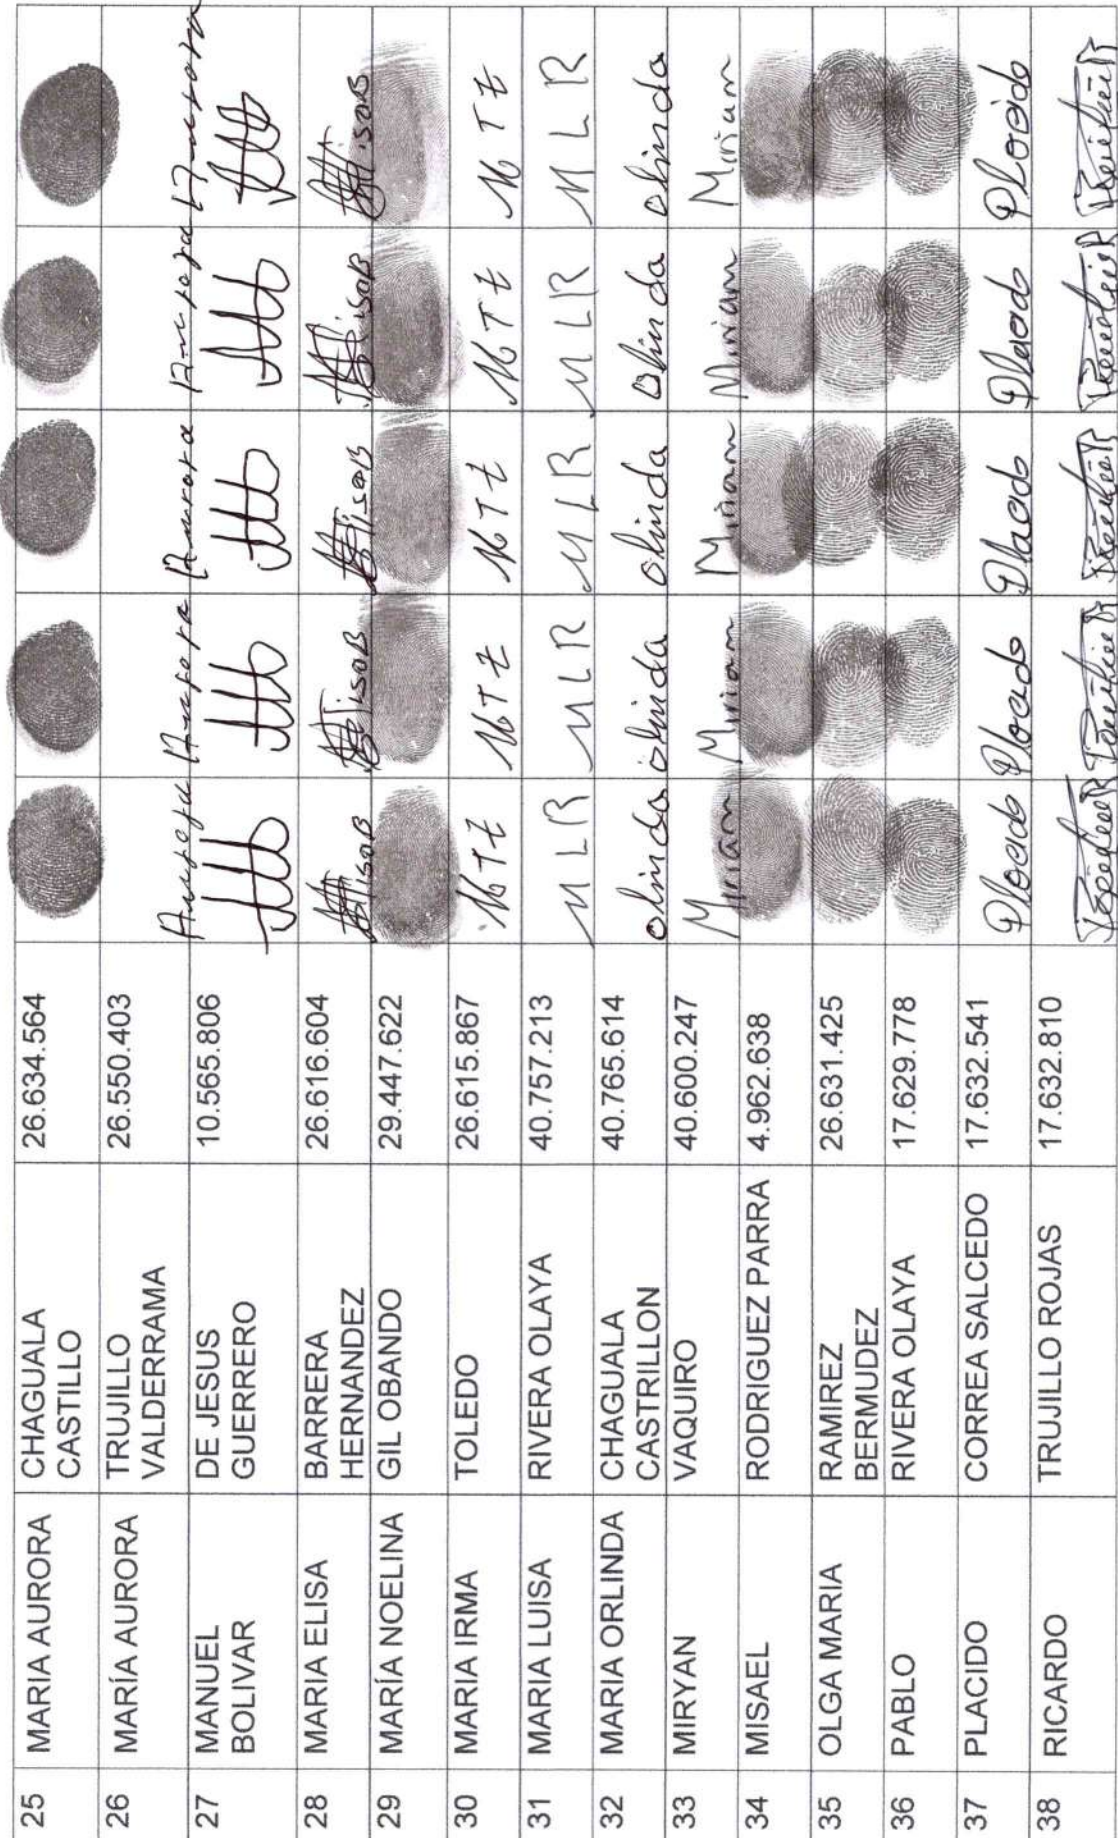 25 MARIA AURORA CHAGUALA CASTILLO 26.634.564
26 MARÍA AURORA TRUJILLO VALDERRAMA 26.550.403 Aurora Aurora Aurora Aurora Aurora
27 MANUEL BOLIVAR DE JESUS GUERRERO 10.565.806
28 MARIA ELISA BARRERA HERNANDEZ 26.616.604
29 MARÍA NOELINA GIL OBANDO 29.447.622
30 MARIA IRMA TOLEDO 26.615.867 MTZ MTZ MTZ MTZ MTZ
31 MARIA LUISA RIVERA OLAYA 40.757.213 MLR MLR MLR MLR MLR
32 MARIA ORLINDA CHAGUALA CASTRILLON 40.765.614 olinda olinda olinda olinda olinda
33 MIRYAN VAQUIRO 40.600.247 Miriam Miriam Miriam Miriam Miriam
34 MISAEL RODRIGUEZ PARRA 4.962.638
35 OLGA MARIA RAMIREZ BERMUDEZ 26.631.425
36 PABLO RIVERA OLAYA 17.629.778
37 PLACIDO CORREA SALCEDO 17.632.541
38 RICARDO TRUJILLO ROJAS 17.632.810